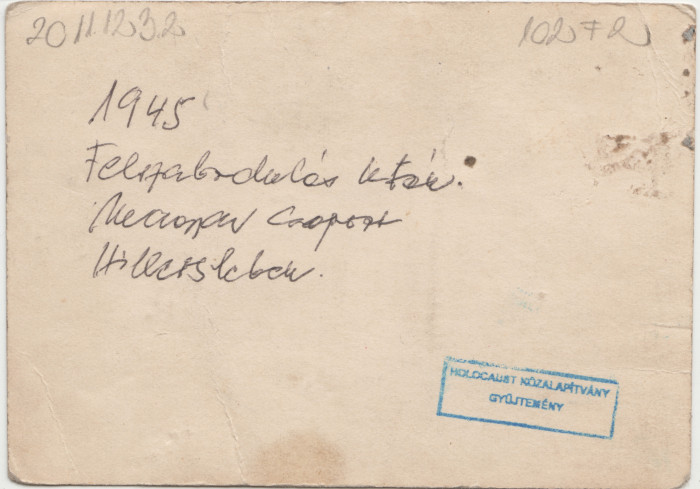 2011.1232
102 F 2
1945
Felszabadulás után.
Magyar csoport
Hillersleben.
HOLOCAUST KÖZALAPÍTVÁNY
GYŰJTEMÉNY